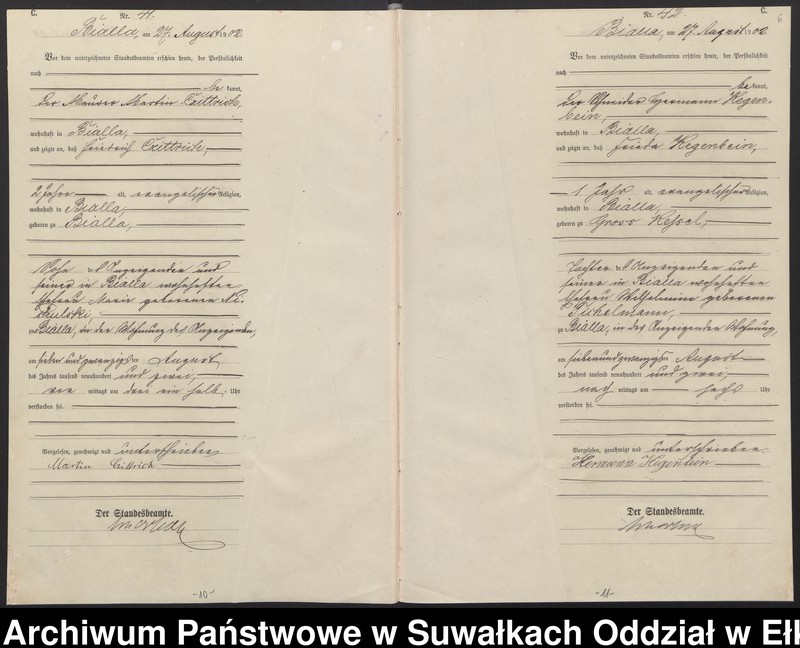 C.
Nr. 41.
Bialla, am 27. August 1902.
Vor dem unterzeichneten Standesbeamten erschien heute, der Persönlichkeit
nach
be kannt,
der Maurer Martin Czittrich,
wohnhaft in Bialla,
und zeigte an, daß Friedrich Czittrich,
2 Jahre alt, evangelischer Religion,
wohnhaft in Bialla,
geboren zu Bialla,
Sohn des Anzeigenden und
seiner in Bialla wohnhaften
Ehefrau Marie geborenen
zu Bialla, in der Wohnung des Anzeigenden,
am sieben und zwanzigsten August
des Jahres tausend neunhundert und zwei,
vor mittags um drei ein halb Uhr
verstorben sei.
Vorgelesen, genehmigt und unterschrieben
Martin Czittrich
Der Standesbeamte.
-10-
C.
6
Nr. 42.
Bialla, am 27. August 1902
Vor dem unterzeichneten Standesbeamten erschien heute, der Persönlichkeit
nach
be kannt,
der Schneider Hermann Hegen-
bein,
wohnhaft in Bialla,
und zeigte an, daß Frieda Hegenbein,
1 Jahr alt, evangelischer Religion,
wohnhaft in Bialla,
geboren zu Gross Kessel,
Tochter des Anzeigenden und
seiner in Bialla wohnhaften
Ehefrau Wilhelmine geborenen
zu Bialla, in des Anzeigenden Wohnung,
am siebenundzwanzigsten August
des Jahres tausend neunhundert und zwei,
nach mittags um sechs Uhr
verstorben sei.
Vorgelesen, genehmigt und unterschrieben
Hermann Hegenbein
Der Standesbeamte.
-11-
Archiwum Państwowe w Suwałkach Oddział w Ełk